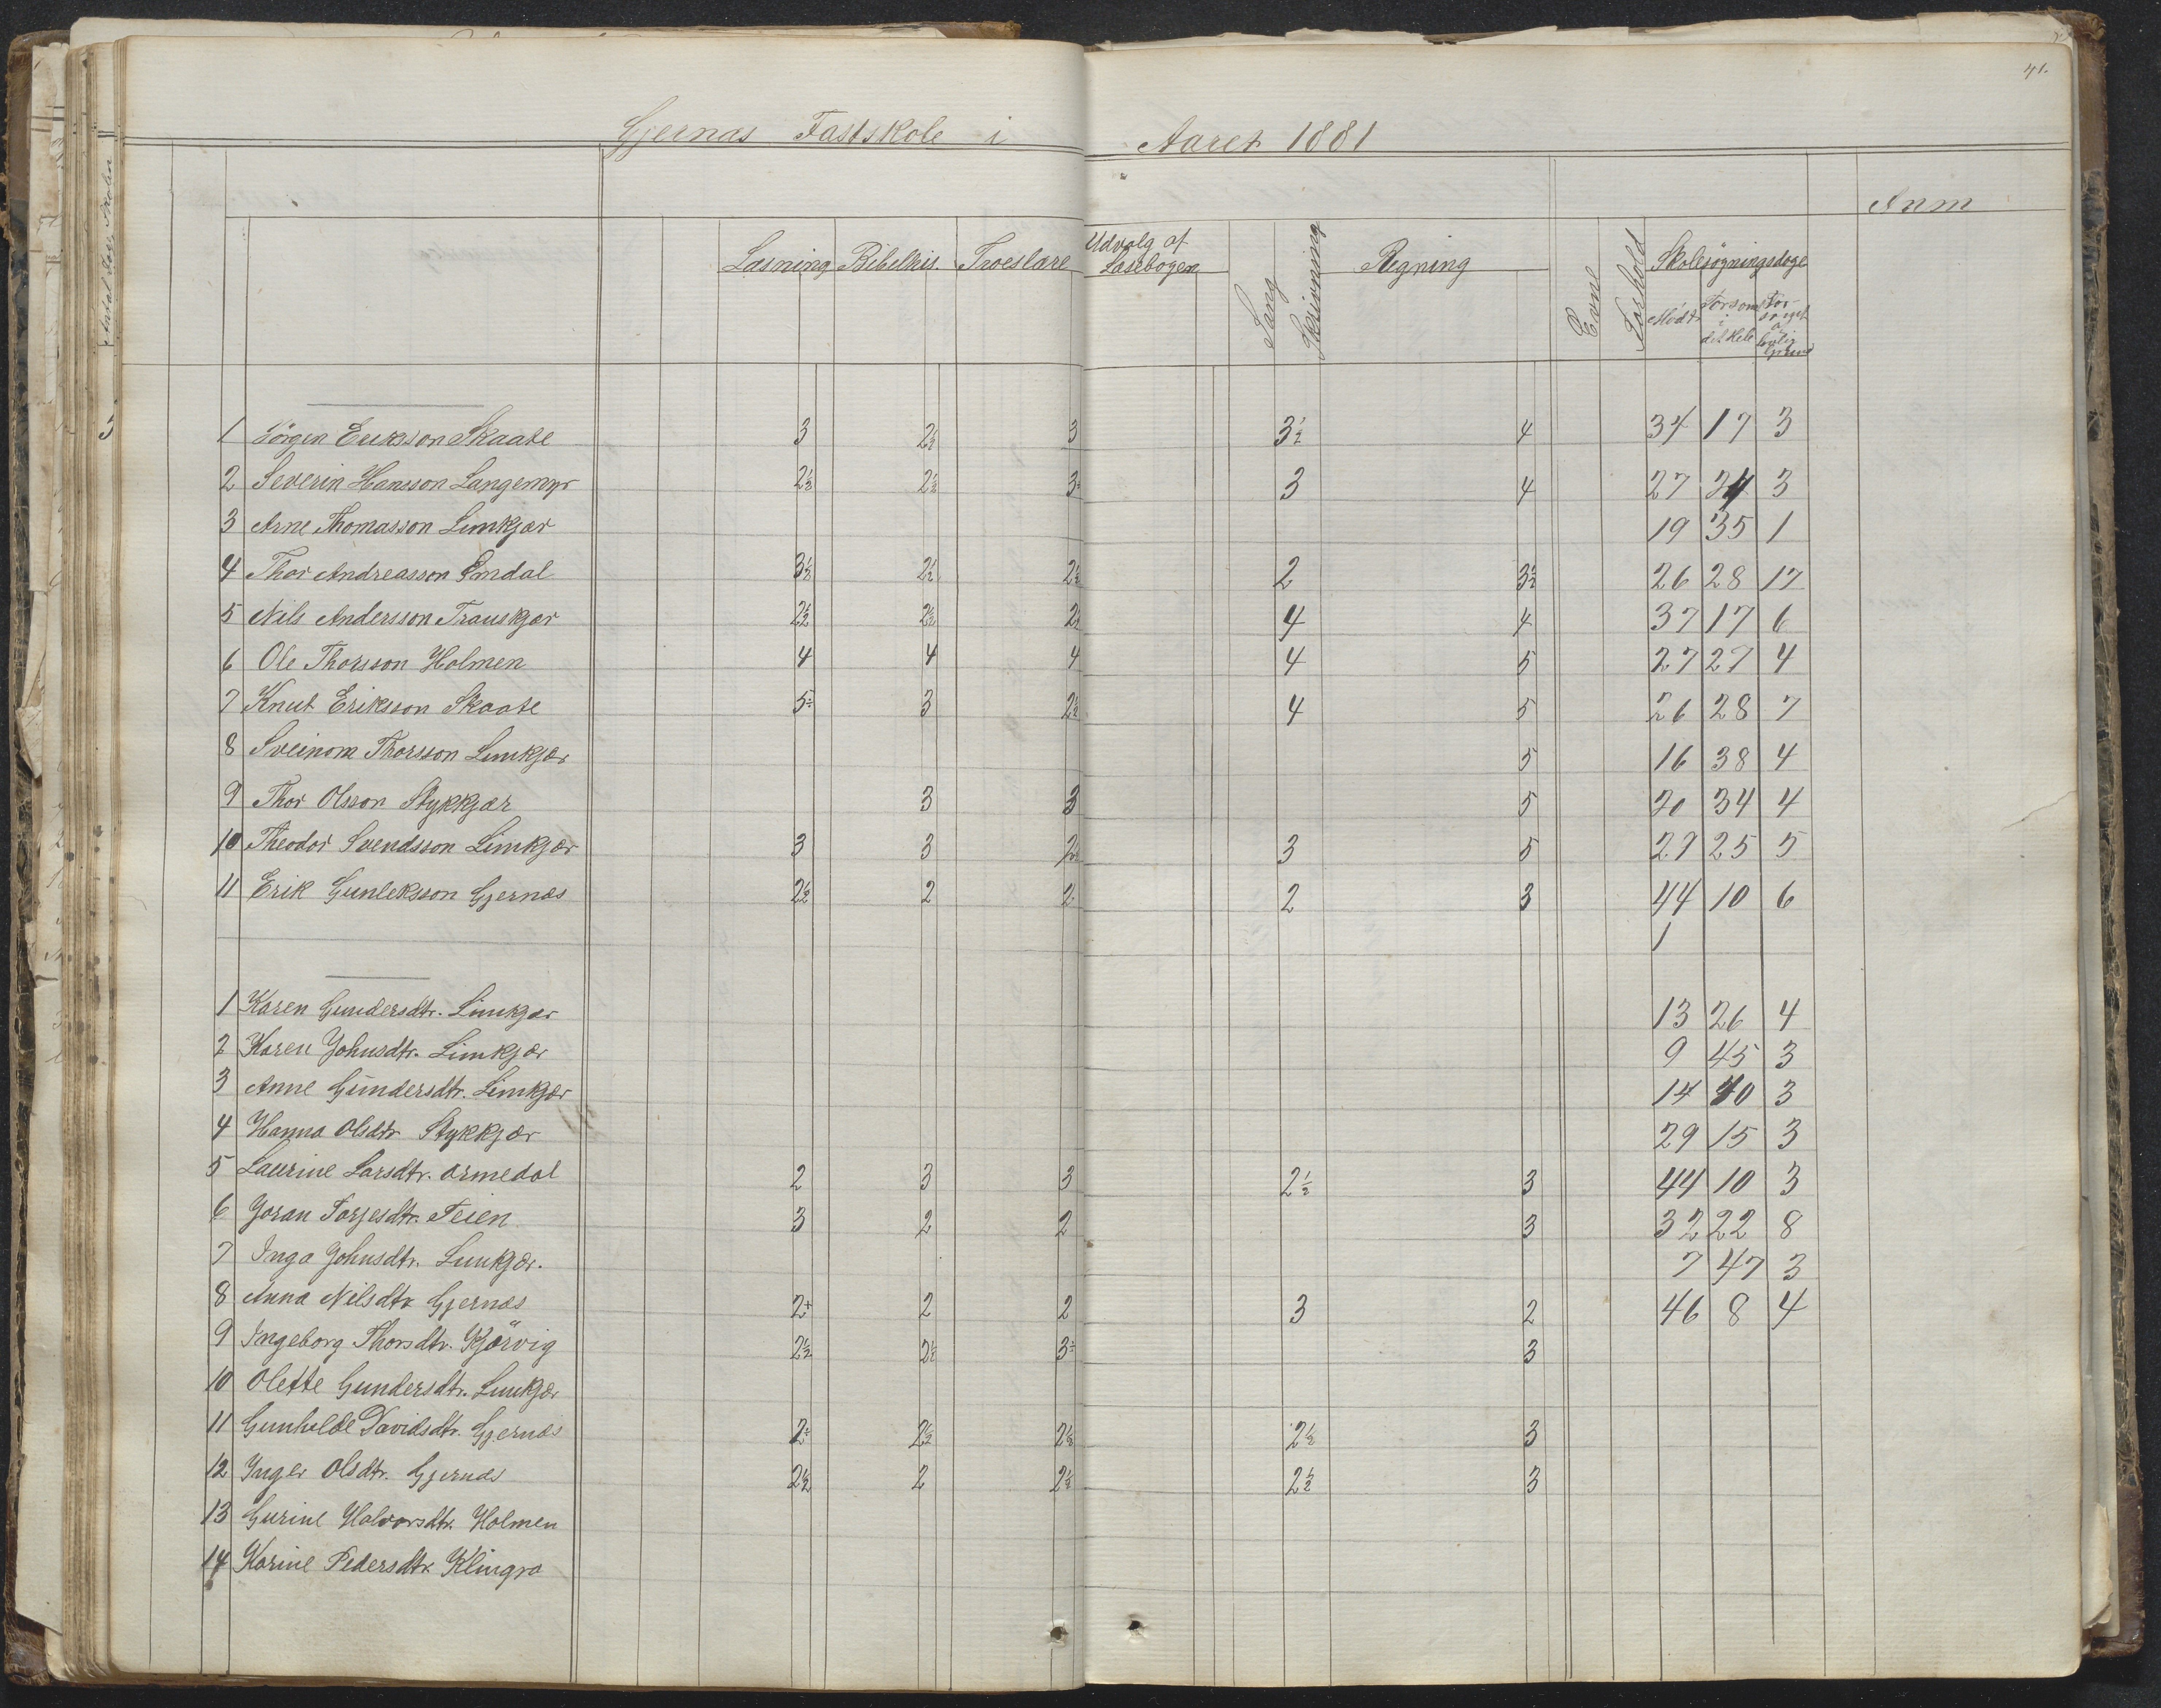 41.
Gjernæs Fastskole i Aaret 1881
Anm
Læsning Bibelhis. Troeslære Udvalg af Læsebogen Sang Skrivning Regning Evne Forhold Skolesøgningsdage
Mødt Forsømt i det Hele Forsømt a lovlig Grund
1 Jörgen Eerksson Skaate 3 2½ 3 3½ 4 34 17 3
2 Severin Hansson Langemyr 2½ 2½ 3 3 4 27 3
3 Arne Thomasson Limkjær 19 35 1
4 Thor Andreasson Omdal 3½ 2½ 2½ 2 3½ 26 28 17
5 Nils Andersson Trauskjær 2½ 2½ 2½ 4 4 37 17 6
6 Ole Thorsson Holmen 4 4 4 4 5 27 27 4
7 Knut Eriksson Skaate 5÷ 3 2½ 4 5 26 28 7
8 Sveinom Thorsson Limkjær 5 16 38 4
9 Thor Olsson Stykkjær 3 3 5 20 34 4
10 Theodor Svendsson Limkjær 3 3 2½ 3 5 29 25 5
11 Erik Gunleksson Gjernæs 2½ 2 2 2 3 44 10 6
1
1 Karen Gundersdtr. Limkjær 13 26 4
2 Karen Johnsdtr. Limkjær 9 45 3
3 Anne Gundersdtr. Limkjær 14 40 3
4 Hanna Olsdtr Stykkjær 29 15 3
5 Laurine Larsdtr. Ormedal 2 3 3 2½ 3 44 10 3
6 Joran Torjesdtr. Teien 3 2 2 3 32 22 8
7 Inga Johnsdtr. Limkjær. 7 47 3
8 Anna Nilsdtr Gjernæs 2+ 2 2 3 2 46 8 4
9 Ingeborg Thorsdtr. Kjörvig 2½ 2½ 3÷ 3
10 Olette Gundersdtr. Limkjær
11 Gunhilde Davidsdtr. Gjernæs 2÷ 2½ 2½ 2½ 3
12 Inger Olsdtr. Gjernæs 2½ 2 2½ 2½ 3
13 Gurine Halvorsdtr. Holmen
14 Karine Pedersdtr. Klingra